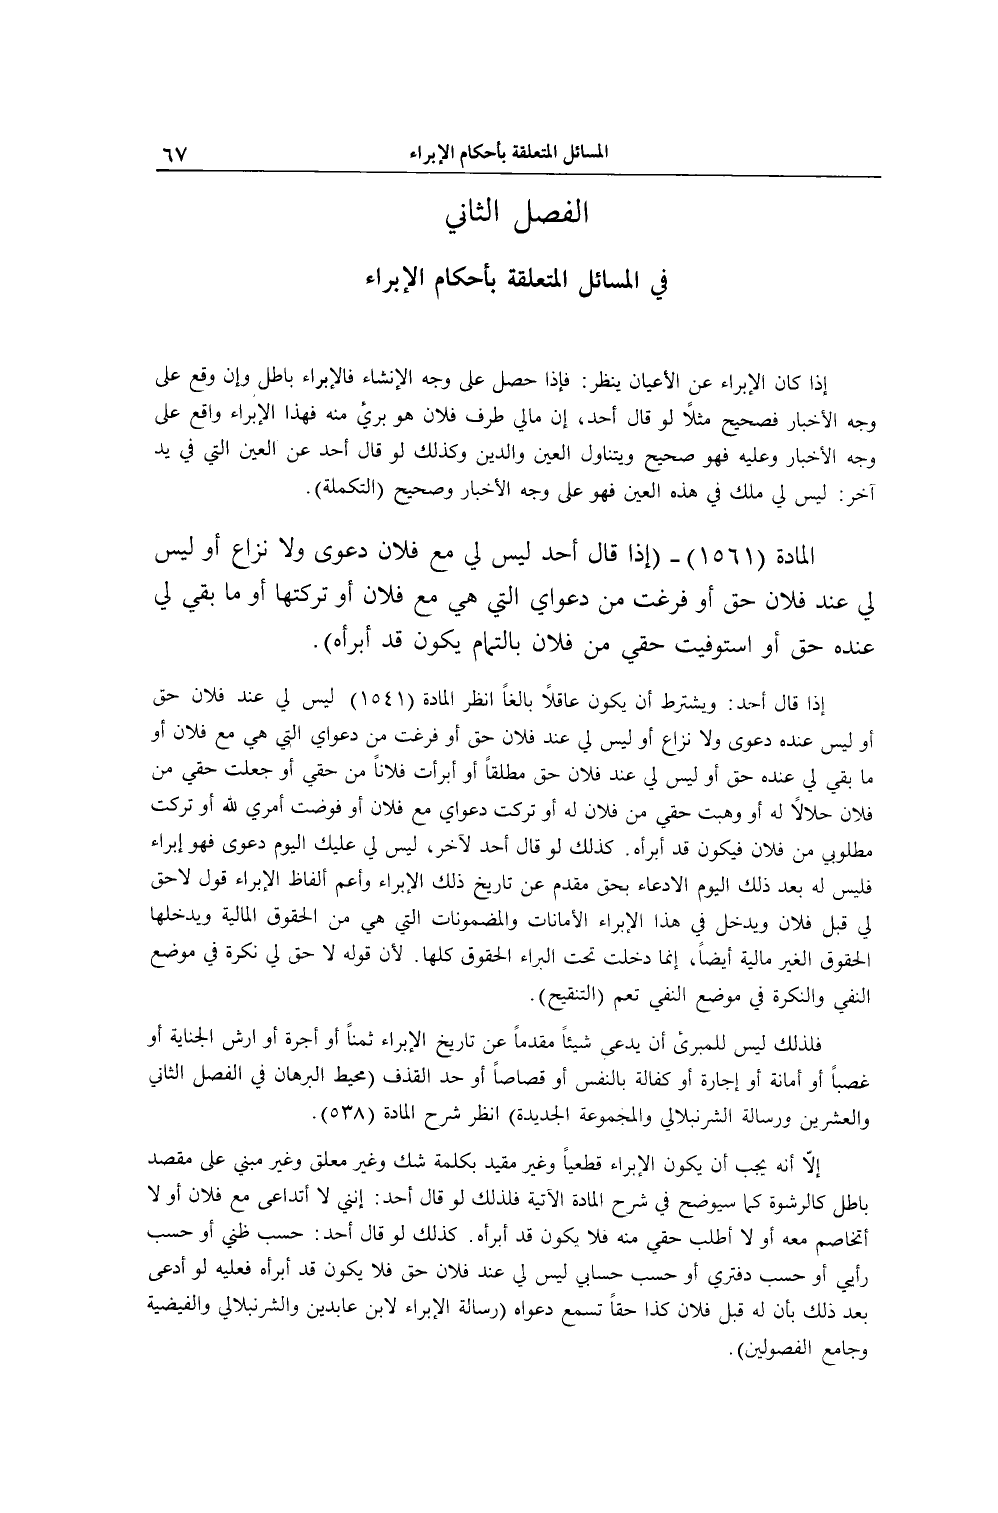 المسائل المتعلقة بأحكام الإبراء ٦٧
الفصل الثاني
في المسائل المتعلقة بأحكام الإبراء
إذا كان الإبراء عن الأعيان ينظر: فإذا حصل على وجه الإنشاء فالإبراء باطل وإن وقع على
وجه الأخبار فصحيح مثلاً لو قال أحد، إن مالي طرف فلان هو بريُ منه فهذا الإبراء واقع على
وجه الأخبار وعليه فهو صحيح ويتناول العين والدين وكذلك لو قال أحد عن العين التي في يد
آخر: ليس لي ملك في هذه العين فهو على وجه الأخبار وصحيح (التكملة).
المادة (١٥٦١) ـ (إذا قال أحد ليس لي مع فلان دعوى ولا نزاع أو ليس
لي عند فلان حق أو فرغت من دعواي التي هي مع فلان أو تركتها أو ما بقي لي
عنده حق أو استوفيت حقي من فلان بالتمام يكون قد أبرأه).
إذا قال أحد: ويشترط أن يكون عاقلاً بالغاً انظر المادة (١٥٤١) ليس لي عند فلان حق
أو ليس عنده دعوى ولا نزاع أو ليس لي عند فلان حق أو فرغت من دعواي التي هي مع فلان أو
ما بقي لي عنده حق أو ليس لي عند فلان حق مطلقاً أو أبرأت فلاناً من حقي أو جعلت حقي من
فلان حلالاً له أو وهبت حقي من فلان له أو تركت دعواي مع فلان أو فوضت أمري لله أو تركت
مطلوبي من فلان فيكون قد أبرأه. كذلك لو قال أحد لآخر، ليس لي عليك اليوم دعوى فهو إبراء
فليس له بعد ذلك اليوم الادعاء بحق مقدم عن تاريخ ذلك الإبراء وأعم ألفاظ الإبراء قول لاحق
لي قبل فلان ويدخل في هذا الإبراء الأمانات والمضمونات التي هي من الحقوق المالية ويدخلها
الحقوق الغير مالية أيضاً، إنما دخلت تحت البراء الحقوق كلها. لأن قوله لا حق لي نكرة في موضع
النفي والنكرة في موضع النفي تعم (التنقيح).
فلذلك ليس للمبرىُ أن يدعي شيئاً مقدماً عن تاريخ الإبراء ثمناً أو أجرة أو ارش الجناية أو
غصباً أو أمانة أو إجارة أو كفالة بالنفس أو قصاصاً أو حد القذف (محيط البرهان في الفصل الثاني
والعشرين ورسالة الشرنبلالي والمجموعة الجديدة) انظر شرح المادة (٥٣٨).
إلّا أنه يجب أن يكون الإبراء قطعياً وغير مقيد بكلمة شك وغير معلق وغير مبني على مقصد
باطل كالرشوة كما سيوضح في شرح المادة الآتية فلذلك لو قال أحد: إنني لا أتداعى مع فلان أو لا
أتخاصم معه أو لا أطلب حقي منه فلا يكون قد أبرأه. كذلك لو قال أحد: حسب ظني أو حسب
رأيي أو حسب دفتري أو حسب حسابي ليس لي عند فلان حق فلا يكون قد أبرأه فعليه لو أدعى
بعد ذلك بأن له قبل فلان كذا حقاً تسمع دعواه (رسالة الإبراء لابن عابدين والشرنبلالي والفيضية
وجامع الفصولين).